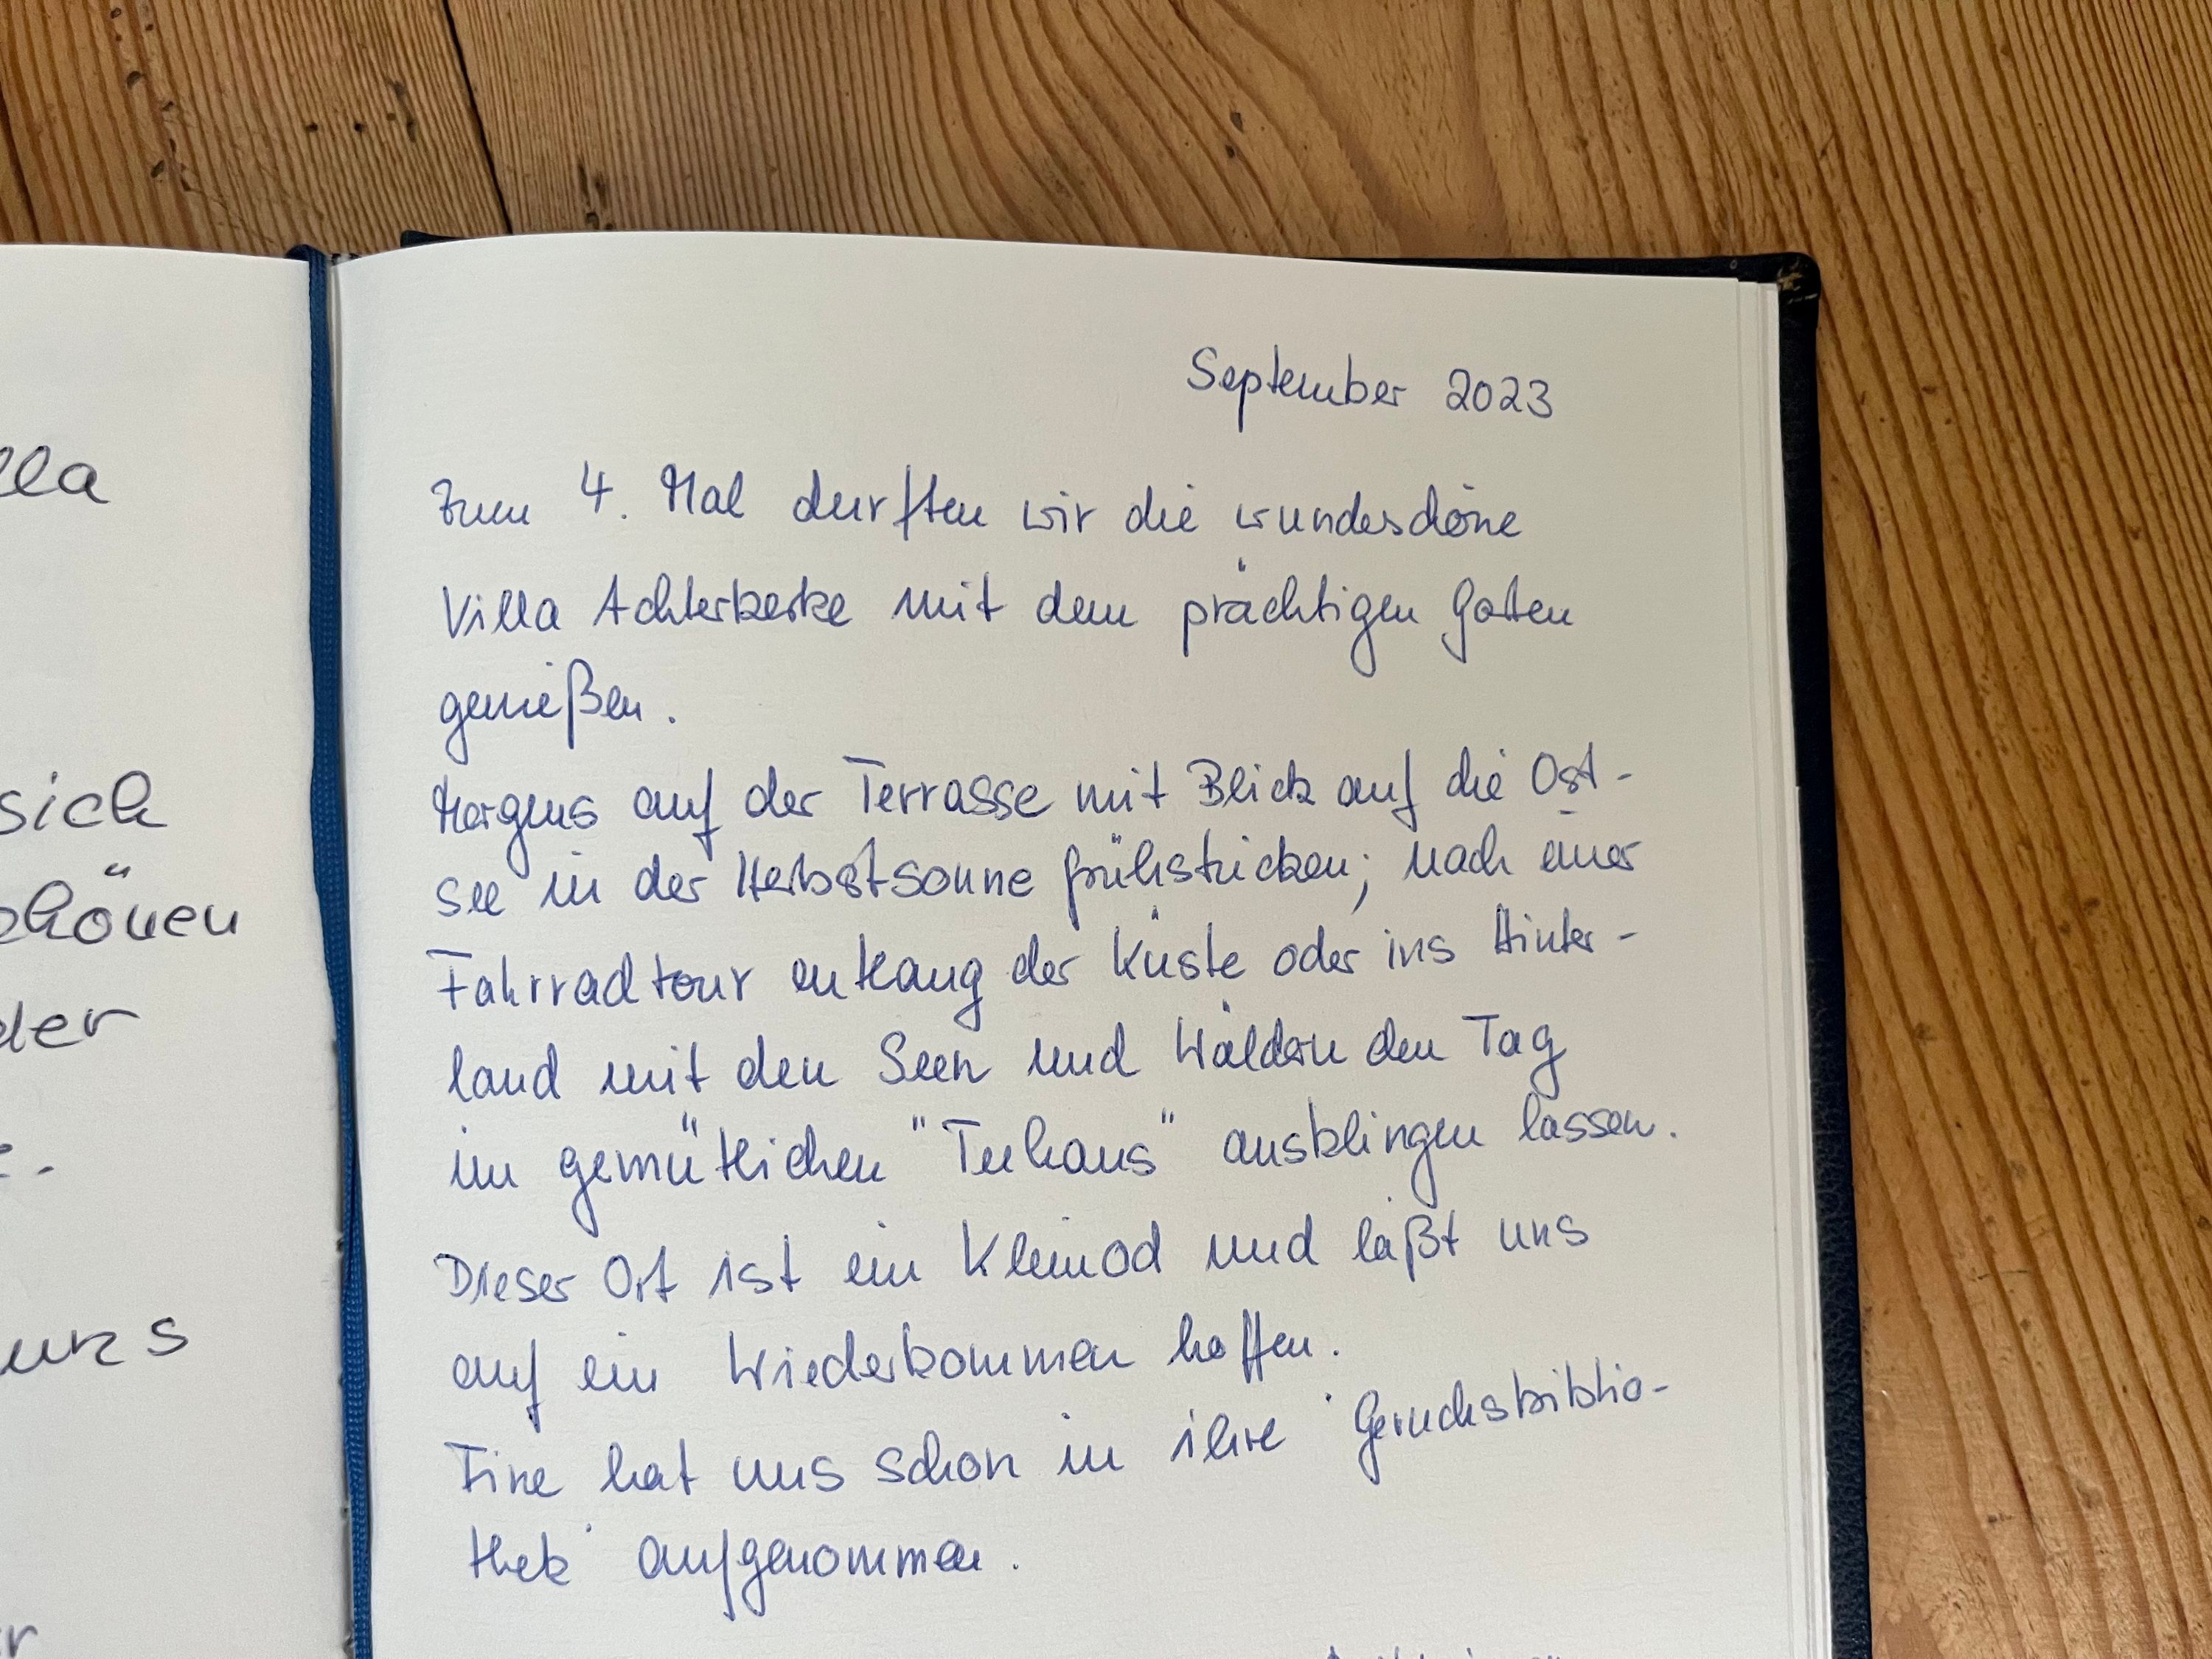 lla
sich
chönen
der
uns
September 2023
Zum 4. Mal durften wir die wunderschöne
Villa Achterkerke mit dem prächtigen Garten
genießen.
Morgens auf der Terrasse mit Blick auf die Ost-
see in der Herbstsonne frühstücken; nach einer
Fahrradtour entlang der Küste oder ins Hinter-
land mit den Seen und Wäldern den Tag
im gemütlichen "Teehaus" ausklingen lassen.
Dieser Ort ist ein Kleinod und läßt uns
auf ein Wiederkommen hoffen.
Fine hat uns schon in ihre 'Geruchsbiblio-
thek' aufgenommen.